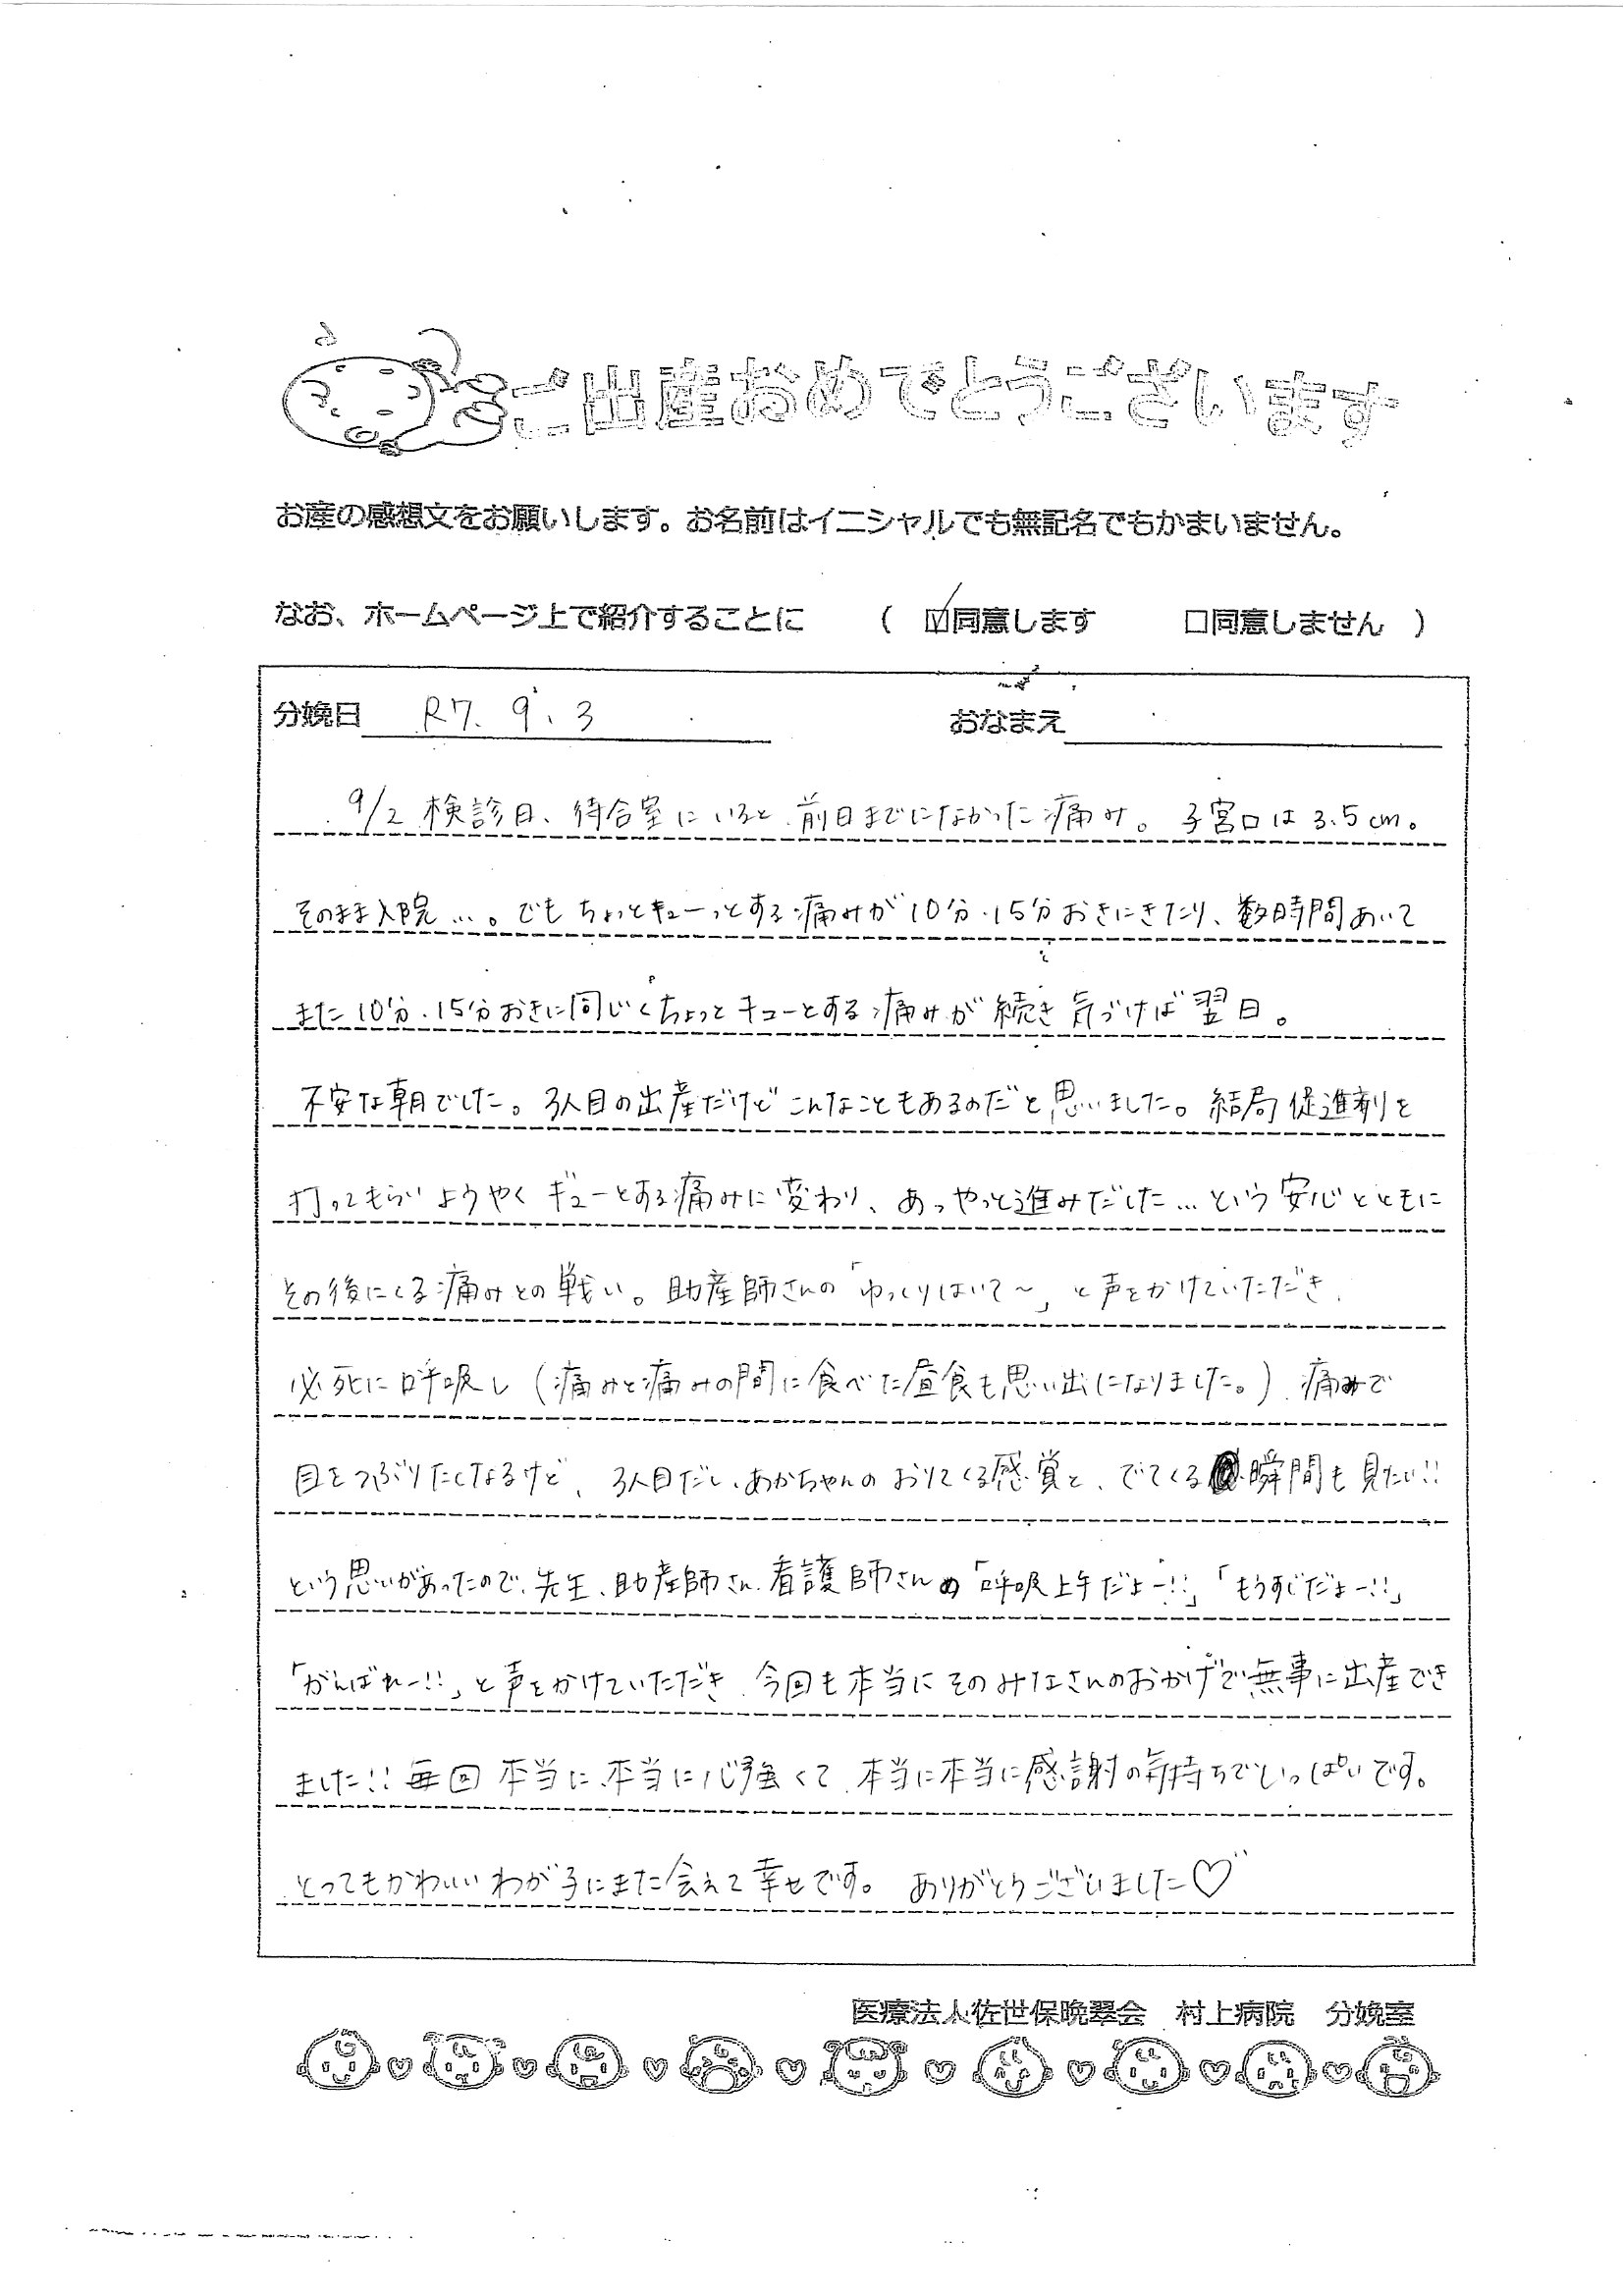 ご出産おめでとうございます
お産の感想文をお願いします。お名前はイニシャルでも無記名でもかまいません。
なお、ホームページ上で紹介することに ( ☑同意します □同意しません )
分娩日 R7. 9. 3 おなまえ
9/2 検診日、待合室にいると 前日までになかった痛み。 子宮口は 3.5cm。
そのまま入院…。でも ちょっとキューっとする痛みが 10分・15分おきにきたり、数時間あいて
また 10分・15分おきに同じくちょっと キューとする痛みが 続き 気づけば 翌日。
不安な朝でした。3人目の出産だけど こんなこともあるのだと 思いました。結局 促進剤を
打ってもらい ようやく ギューとする痛みに変わり、あっやっと進みだした…という 安心とともに
その後にくる痛みとの戦い。助産師さんの「ゆっくりはいて〜」と声をかけていただき、
必死に呼吸し (痛みと痛みの間に食べた昼食も思い出になりました。) 痛みで
目をつぶりたくなるけど、3人目だし、あかちゃんの おりてくる感覚と、でてくる瞬間も見たい!!
という思いがあったので、先生、助産師さん、看護師さんの「呼吸上手だよー!!」「もうすぐだよー!!」
「がんばれー!!」と声をかけていただき 今回も本当に そのみなさんのおかげで無事に出産でき
ました!! 毎回 本当に、本当に心強くて 本当に本当に感謝の気持ちでいっぱいです。
とってもかわいい わが子にまた会えて 幸せです。 ありがとうございました♡
医療法人佐世保晩翠会 村上病院 分娩室